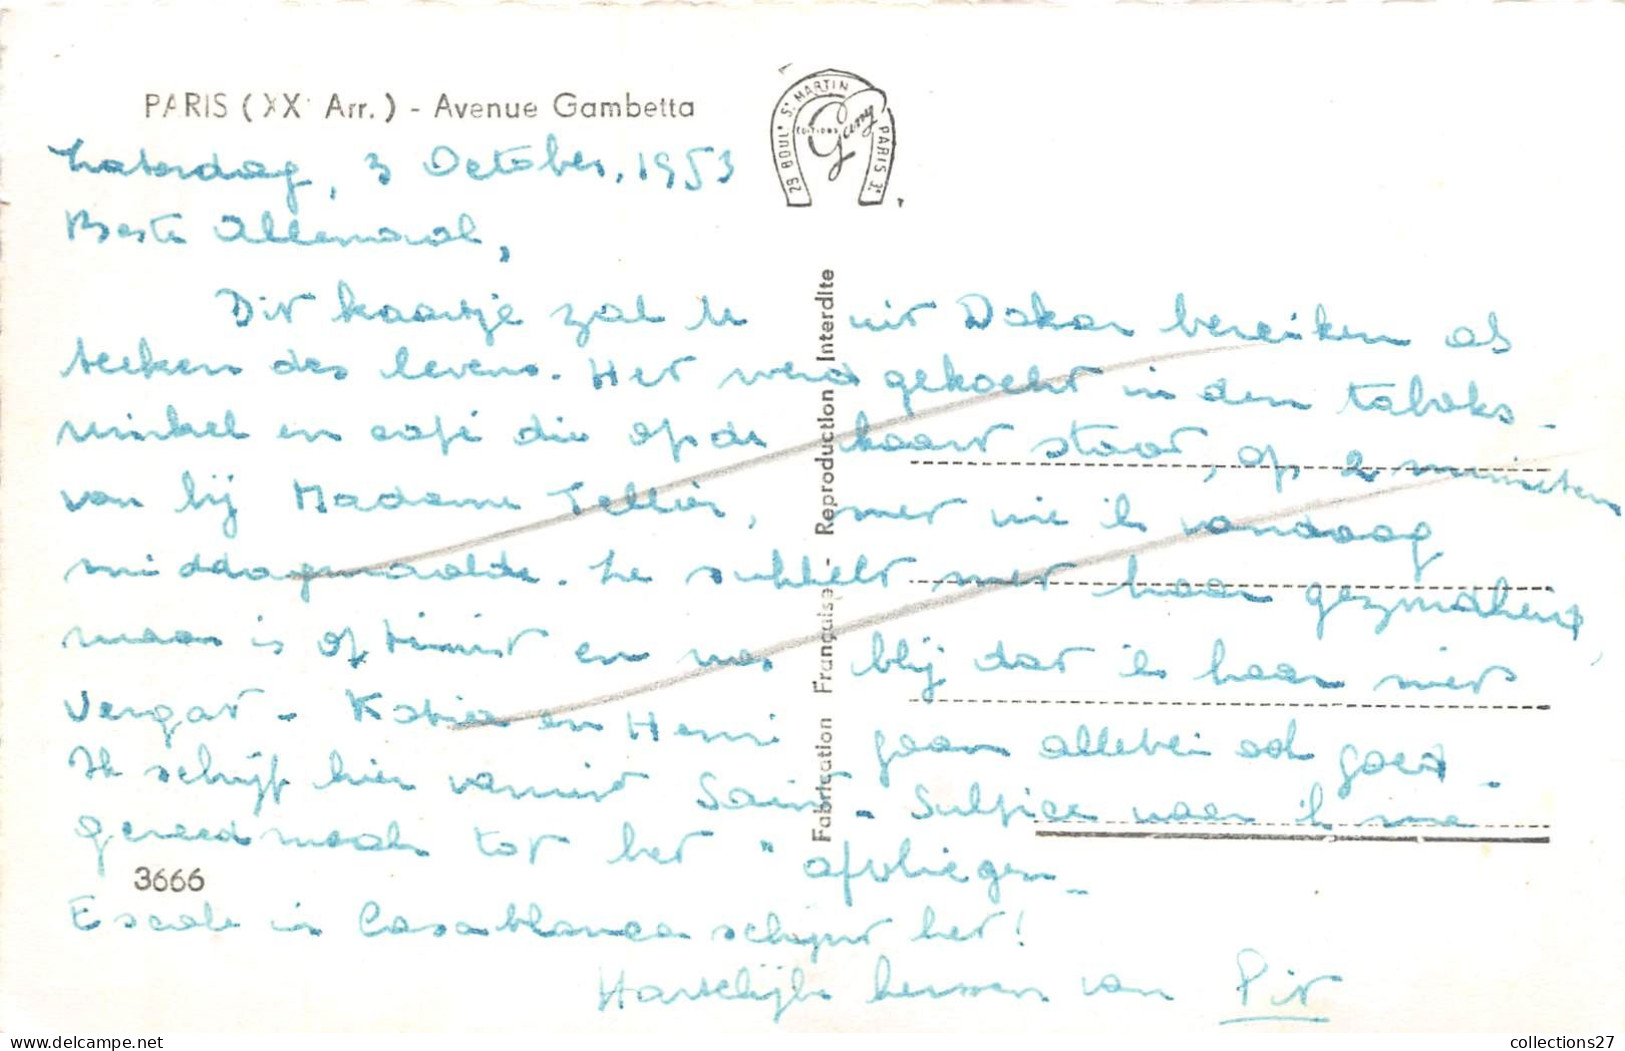 PARIS (XXe Arr.) - Avenue Gambetta
29 BOULd St MARTIN PARIS 3e
EDITIONS
Guy
Zaterdag, 3 October, 1953
Beste Allemaal,
Dit kaartje zal U uit Dakar bereiken als
teeken des levens. Het werd gekocht in den tabaks-
winkel en café die op de kaart staat, op 2 minuten
van bij Madame Tellier, met wie ik vandaag
middagmaalde. Ze sukkelt met haar gezondheid,
maar is optimist en was blij dat ik haar niet
vergat. Katia en Henri gaan allebei ook goed.
Ik schrijf hier vanuit Saint-Sulpice waar ik me
gereed maak tot het "afvliegen.
Escale in Casablanca schijnt het!
Hartelijke kussen van Pit
Fabrication Française - Reproduction Interdite
3666
collections27